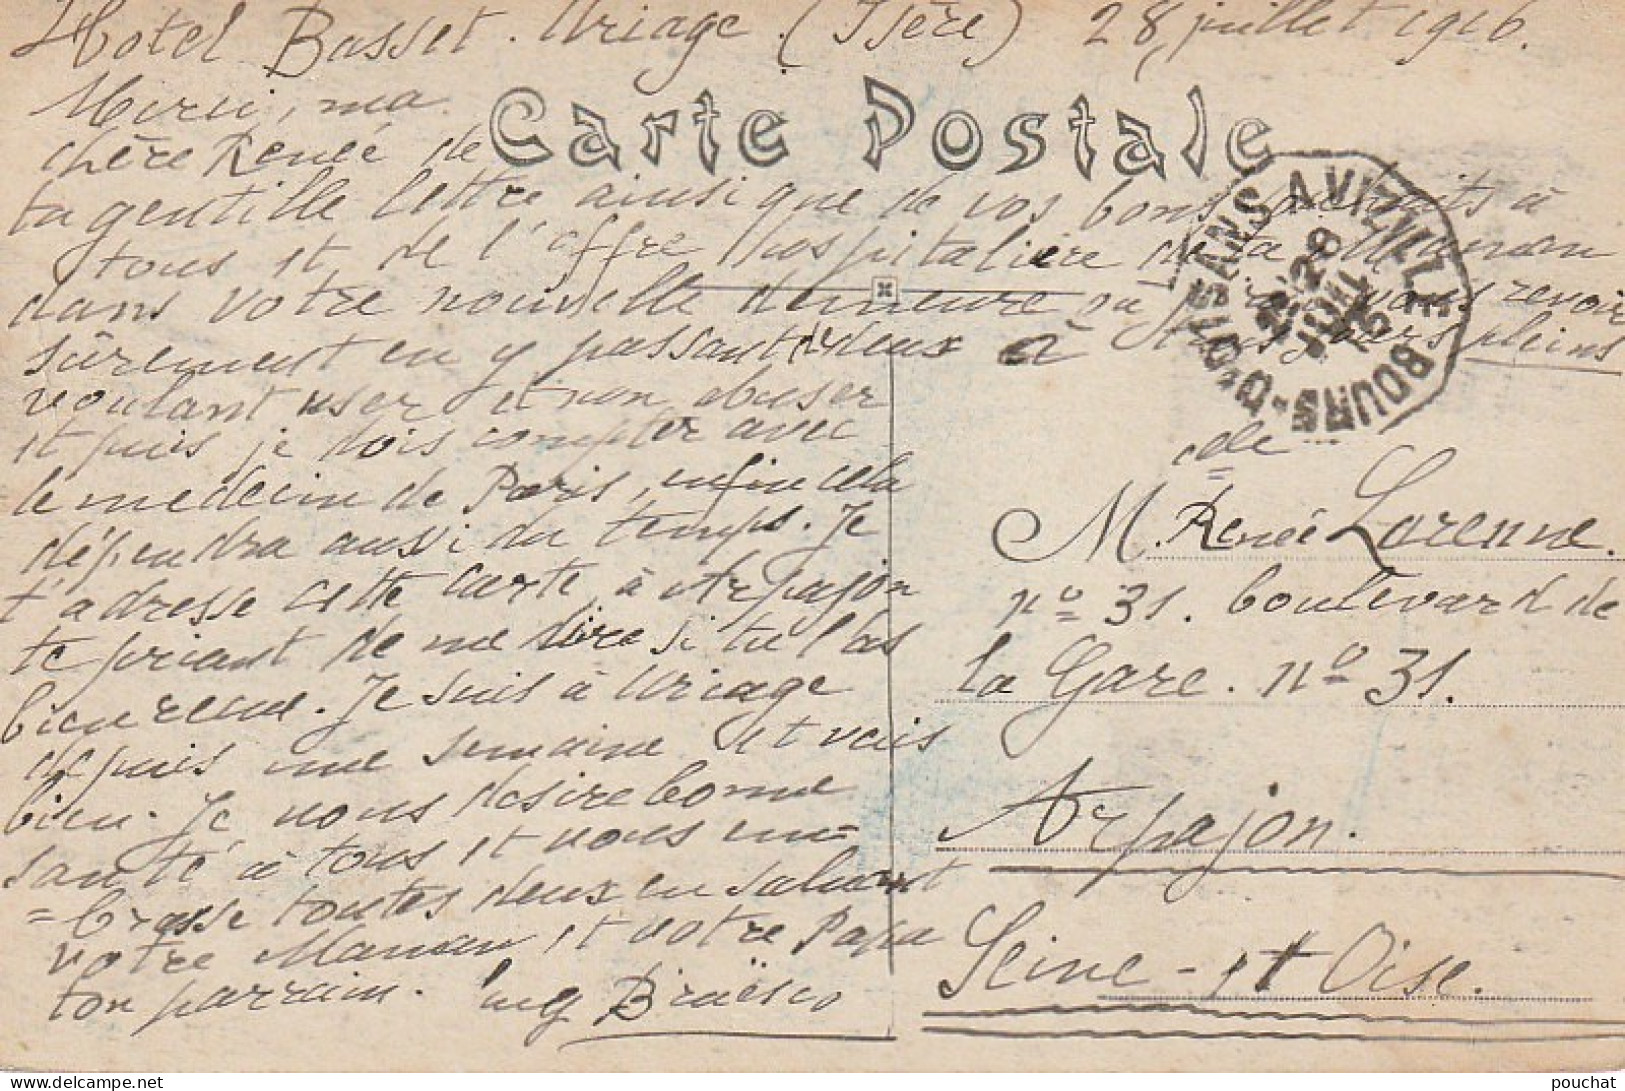 Hotel Basset. Uriage (Isère) 28, juillet 1916.
Merci, ma
Carte Postale
chère Renée de
ta gentille lettre ainsi que de vos bons souhaits à
tous et de l'offre hospitalière de ta Maman
dans votre nouvelle demeure où vous revoir
sûrement en y passant deux à jours pleins
voulant user et non abuser
et puis je dois compter avec
le medecin de Paris, enfin cela
dépendra aussi du temps. Je
t'adresse cette carte à Arpajon
te priant de me dire si tu l'as
bien reçue. Je suis à Uriage
depuis une semaine et vais
bien. Je vous desire bonne
santé à tous et vous em=
=brasse toutes deux en saluant
votre Maman et votre Papa
ton parrain. Eug Braësco
BOURG-D'OISANS A VIZILLE
28
JUIL
16
M.elle Renée Lorenne.
nº 31. boulevard de
la Gare. nº 31.
Arpajon.
Seine-et Oise.
pouchat